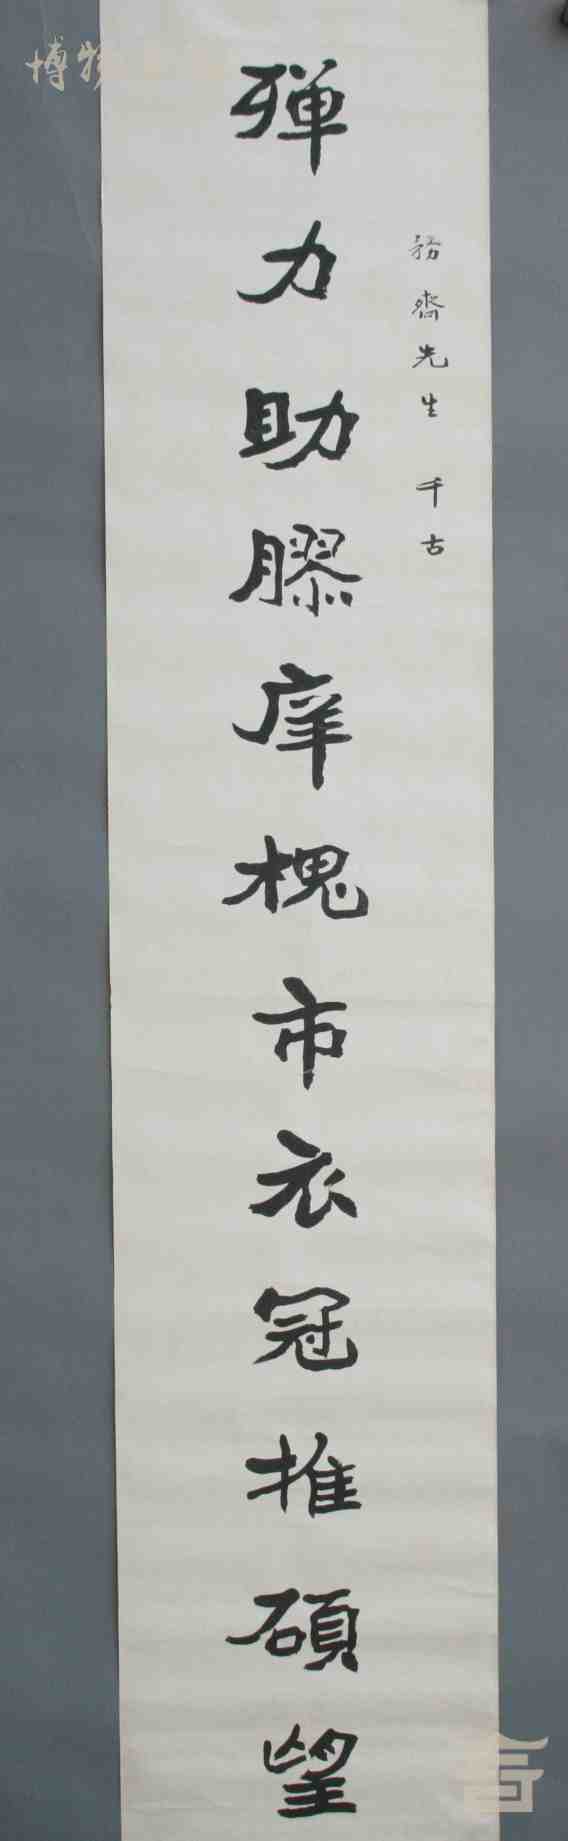 務齋先生 千古
殫力助膠庠槐市衣冠推碩望
博物